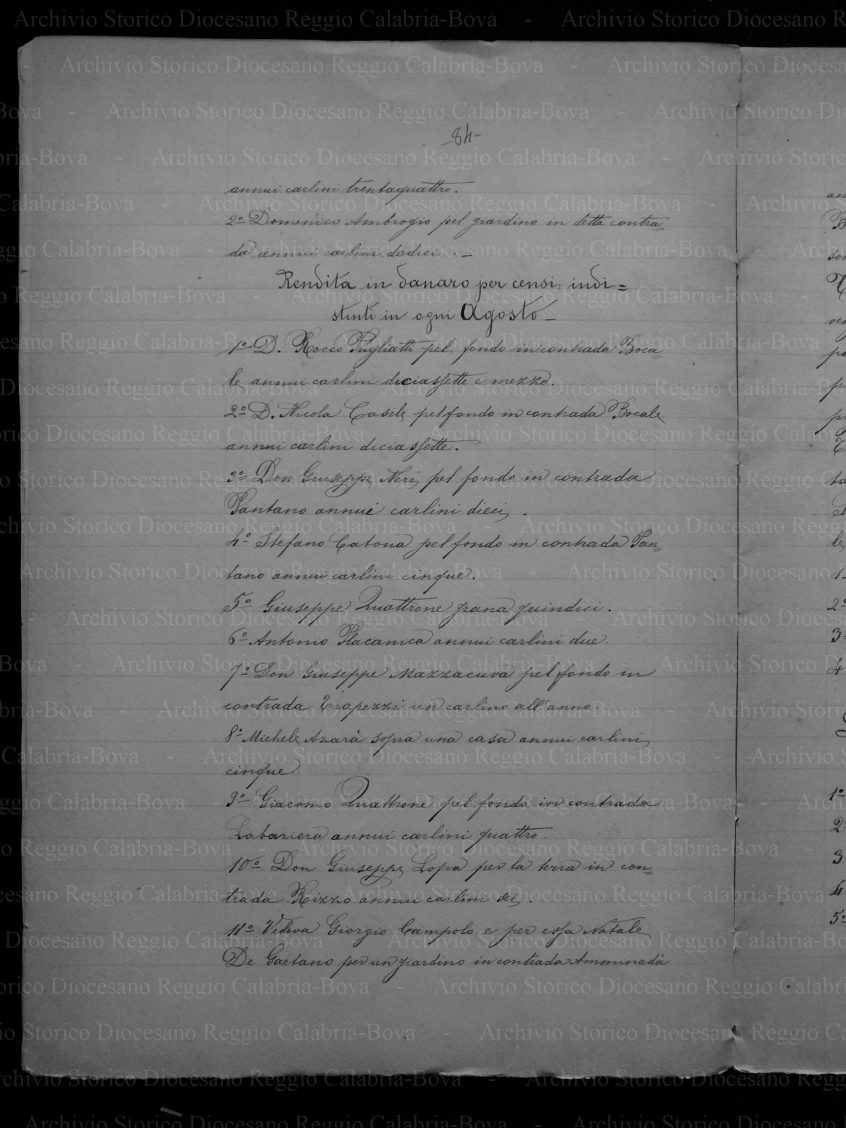 -84-
annui carlini trentaquattro.
2º Domenico Ambrogio pel giardino in detta contra-
da annui carlini dodici. -
Rendita in danaro per censi indi=
stinti in ogni Agosto -
1º D. Rocco Pugliatti pel fondo in contrada Boca-
le annui carlini diciassette e mezzo.
2º D. Nicola Casile pel fondo in contrada Bocale
annui carlini diciassette.
3º Don Giuseppe Neri pel fondo in contrada
Pantano annui carlini dieci.
4º Stefano Catona pel fondo in contrada Pan-
tano annui carlini cinque.
5º Giuseppe Quattrone grana quindici.
6º Antonio Placanica annui carlini due.
7º Don Giuseppe Mazzacuva pel fondo in
contrada Trapezzi un carlino all'anno.
8º Michele Azarà sopra una casa annui carlini
cinque.
9º Giacomo Quattrone pel fondo in contrada
Labariera annui carlini quattro.
10º Don Giuseppe Lopa per la terra in con-
trada Rizzo annui carlini sei.
11º Vedova Giorgio Campolo e per essa Natale
De Gaetano per un giardino in contrada Amminadà
1º
2º
3
4
5º
Archivio Storico Diocesano Reggio Calabria-Bova